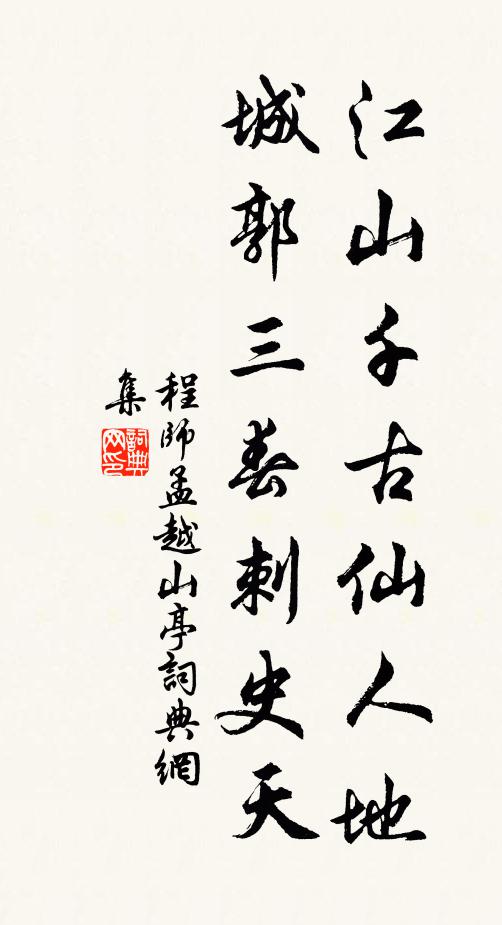 江山千古仙人地
城郭三春刺史天
程師孟越山亭詞典網
集
詞典
网印